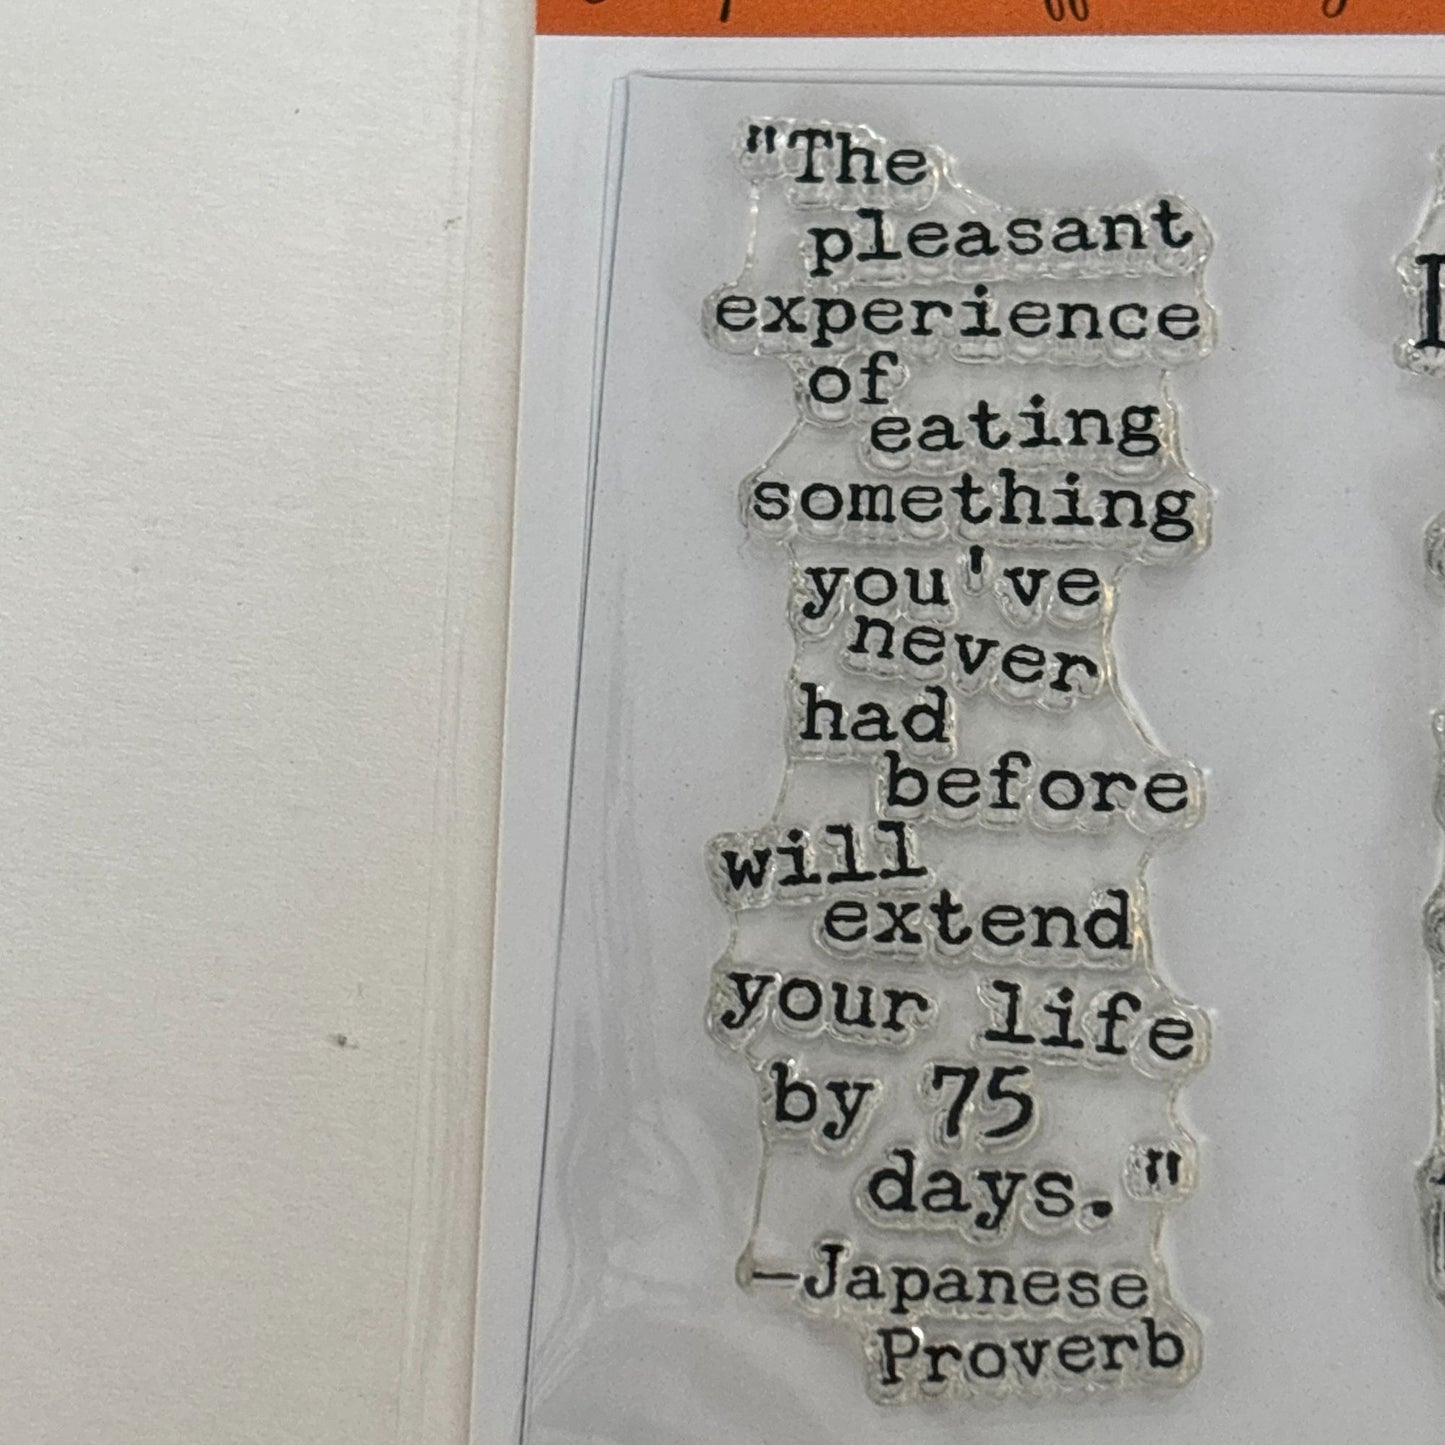 "The
pleasant
experience
of
eating
something
you've
never
had
before
will
extend
your life
by 75
days."
—Japanese
Proverb